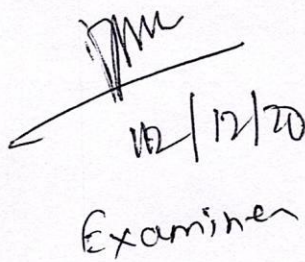 12/12/20
Examiner